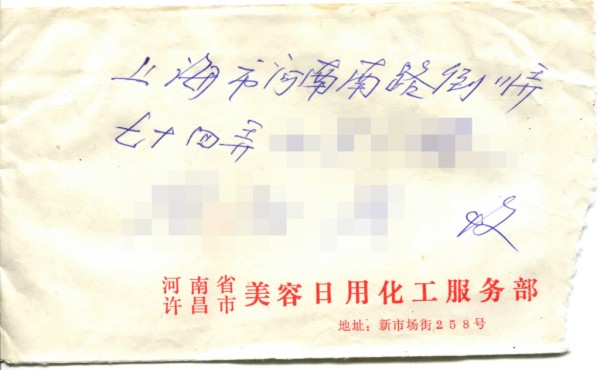 上海市河南南路倒川弄
七十四弄
收
河南省
许昌市
美容日用化工服务部
地址：新市场街258号